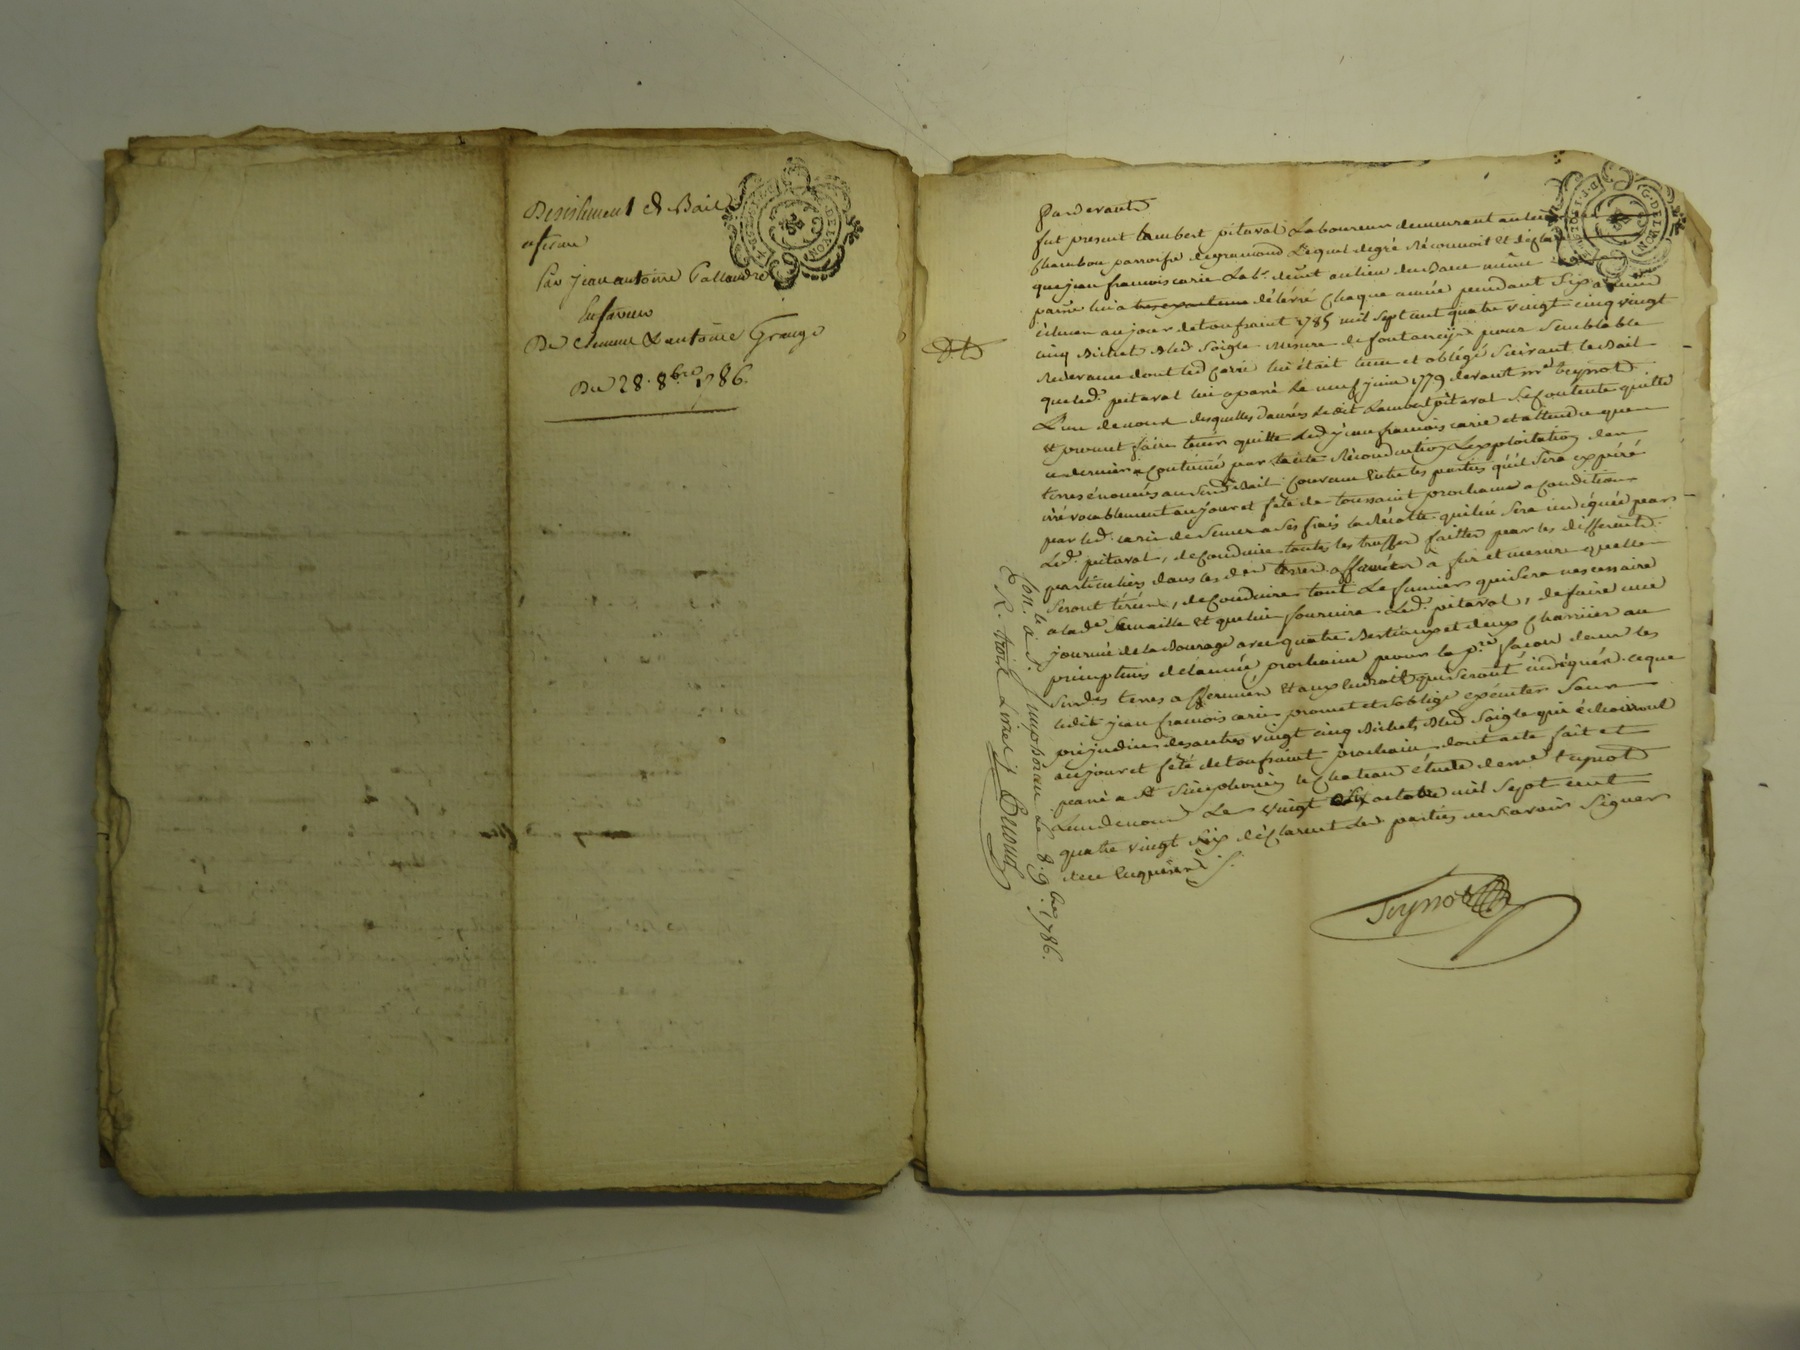 Desistement de Bail
a ferme
Par jean antoine Pallandre
en faveur
De Clemme & antoine Grange
Du 28. 8bre 1786.
Pardevant
fut present lambert pitaval Laboureur demeurant au lieu
chambou parroisse de gramond Lequel de gré Réconnoit et déclare
que jean francois carie Labr. demt. au lieu du Banc même
paroisse lui a délévré chaque année pendant six années
échues au jour de toussaint 1785 mil sept cent quatre vingt cinq vingt
cinq Bichet Bled Soigle mésure de fontaneys pour Semblable
Rédevance dont led carie lui était tenu et obligé Suivant le Bail
que led. pitaval lui a passé Le neuf juin 1779 devant me teynot
L'un de nous desquelles denrés ledit Lambert pitaval Se contente quitte
et promet faire tenir quitte led jean francois carie et attendu que
ce dernier a continué par tacite Réconduction L'exploitation des
terres énoncés au Susd Bail convenu entre les parties qu'il Sera expiré
irrévocablement au jour et fete de toussaint prochaine a condition
par led. carie de Semer a Ses frais la Récolte qui lui Sera indiquée par
Led. pitaval, de conduire toutes les truffes faittes par les différents
particuliers dans les des terres affermées a fur et mesure quelles
Seront tirées, de conduire tout Le fumier qui Sera nescessaire
a lade Semaille et que lui fournira Led. pitaval, de faire une
journée de labourage avec quatre Bestiaux et deux charriier au
printems de l'année prochaine pour la pre façon dans les
Susdes terres affermées et aux endroits qui Seront indiqués. ce que
ledit jean francois carie promet et s'oblige exécuter Sans
préjudice des autres vingt cinq Bichets Bled Soigle qui échoiront
au jour et fête de toussaint prochain dont acte fait et
passé a St Simphorien le chateau étude de me teynot
L'un de nous Le vingt octobre mil Sept cent
quatre vingt Six déclarent les parties ne Savoir Signer
de ce enquises
Teynot
Con.le a St. Simphorien Le 8. 9bre 1786.
R. trois Livres